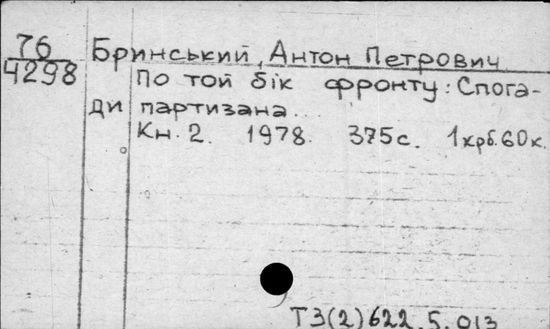 76
4298
Бринський, Антон Петрович
По той бік фронту: Спога-
ди партизана...
Кн. 2. 1978. 375с. 1крб.60к.
Т3(2)622.5.013